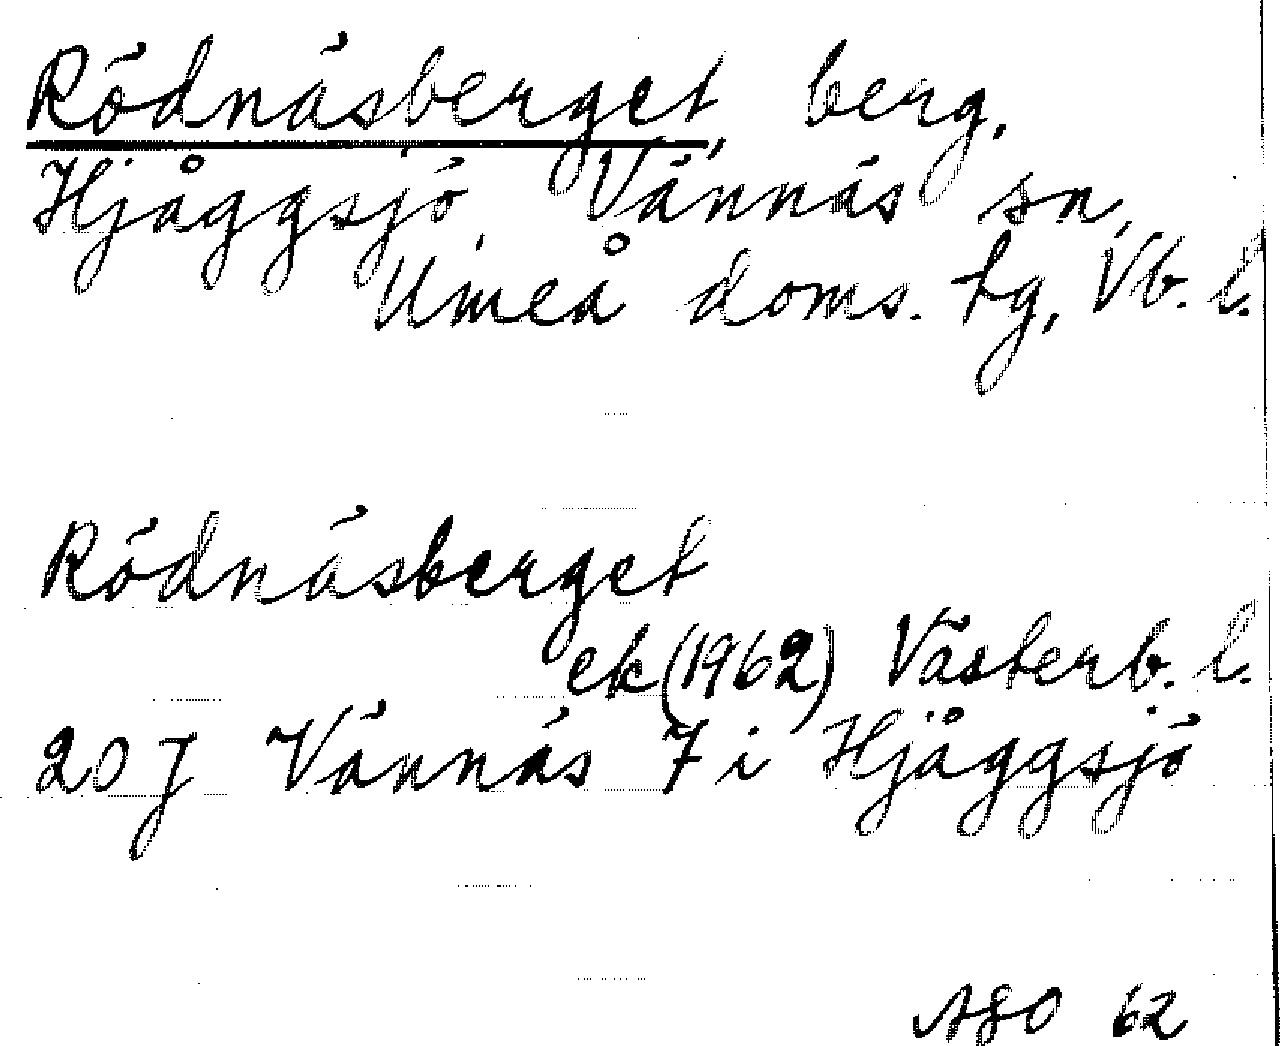 Rödnäsberget, berg,
Hjåggsjö, Vännäs sn,
Umeå doms. tg, Vb. l.
Rödnäsberget
ek (1962) Västerb. l.
20J Vännäs 7i Hjåggsjö
62